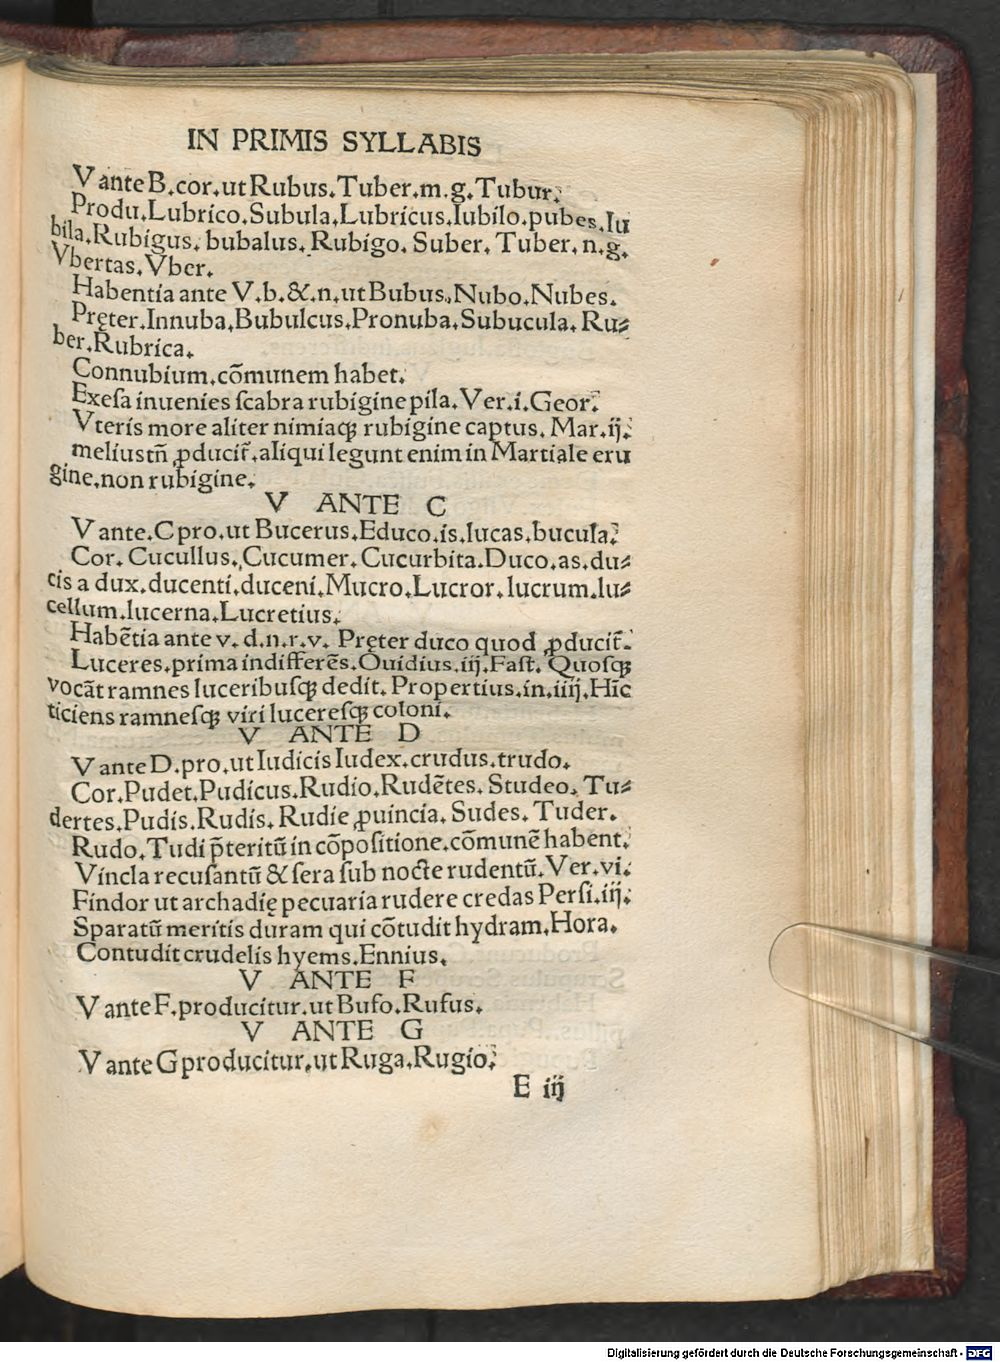 IN PRIMIS SYLLABIS
V ante B.cor.ut Rubus.Tuber.m.g.Tubur.
Produ.Lubrico.Subula.Lubricus.Iubilo.pubes.Iu
bila.Rubigus.bubalus.Rubigo.Suber.Tuber.n.g.
Vbertas.Vber.
Habentia ante V.b.&.n.ut Bubus.Nubo.Nubes.
Pręter.Innuba.Bubulcus.Pronuba.Subucula.Ru⸗
ber.Rubrica.
Connubium.cõmunem habet.
Exeſa inuenies ſcabra rubigine pila.Ver.i.Geor.
Vteris more aliter nimiaqꝫ rubigine captus.Mar.ij.
meliustñ ꝓducit̃.aliqui legunt enim in Martiale eru
gine.non rubigine.
V ANTE C
V ante.C pro.ut Bucerus.Educo.is.lucas.bucula.
Cor.Cucullus.Cucumer.Cucurbita.Duco.as.du⸗
cis a dux.ducenti.duceni.Mucro.Lucror.lucrum.lu⸗
cellum.lucerna.Lucretius.
Habẽtia ante v.d.n.r.v.Pręter duco quod ꝓducit̃.
Luceres.prima indifferẽs.Ouidius.iij.Faſt.Quoſqꝫ
vocãt ramnes luceribuſqꝫ dedit.Propertius.in.iiij.Hĩc
ticiens ramneſqꝫ viri lucereſqꝫ coloni.
V ANTE D
V ante D.pro.ut Iudicis Iudex.crudus.trudo.
Cor.Pudet.Pudicus.Rudio.Rudẽtes.Studeo.Tu⸗
dertes.Pudis.Rudis.Rudie ꝓuincia.Sudes.Tuder.
Rudo.Tudi p̃teritũ in cõpoſitione.cõmunẽ habent.
Vincla recuſantũ & ſera ſub nocte rudentũ.Ver.vi.
Findor ut archadię pecuaria rudere credas Perſi.iij.
Sparatũ meritis duram qui cõtudit hydram.Hora.
Contudit crudelis hyems.Ennius.
V ANTE F
V ante F.producitur.ut Bufo.Rufus.
V ANTE G
V ante G producitur.ut Ruga.Rugio.
E iij
Digitalisierung gefördert durch die Deutsche Forschungsgemeinschaft - DFG